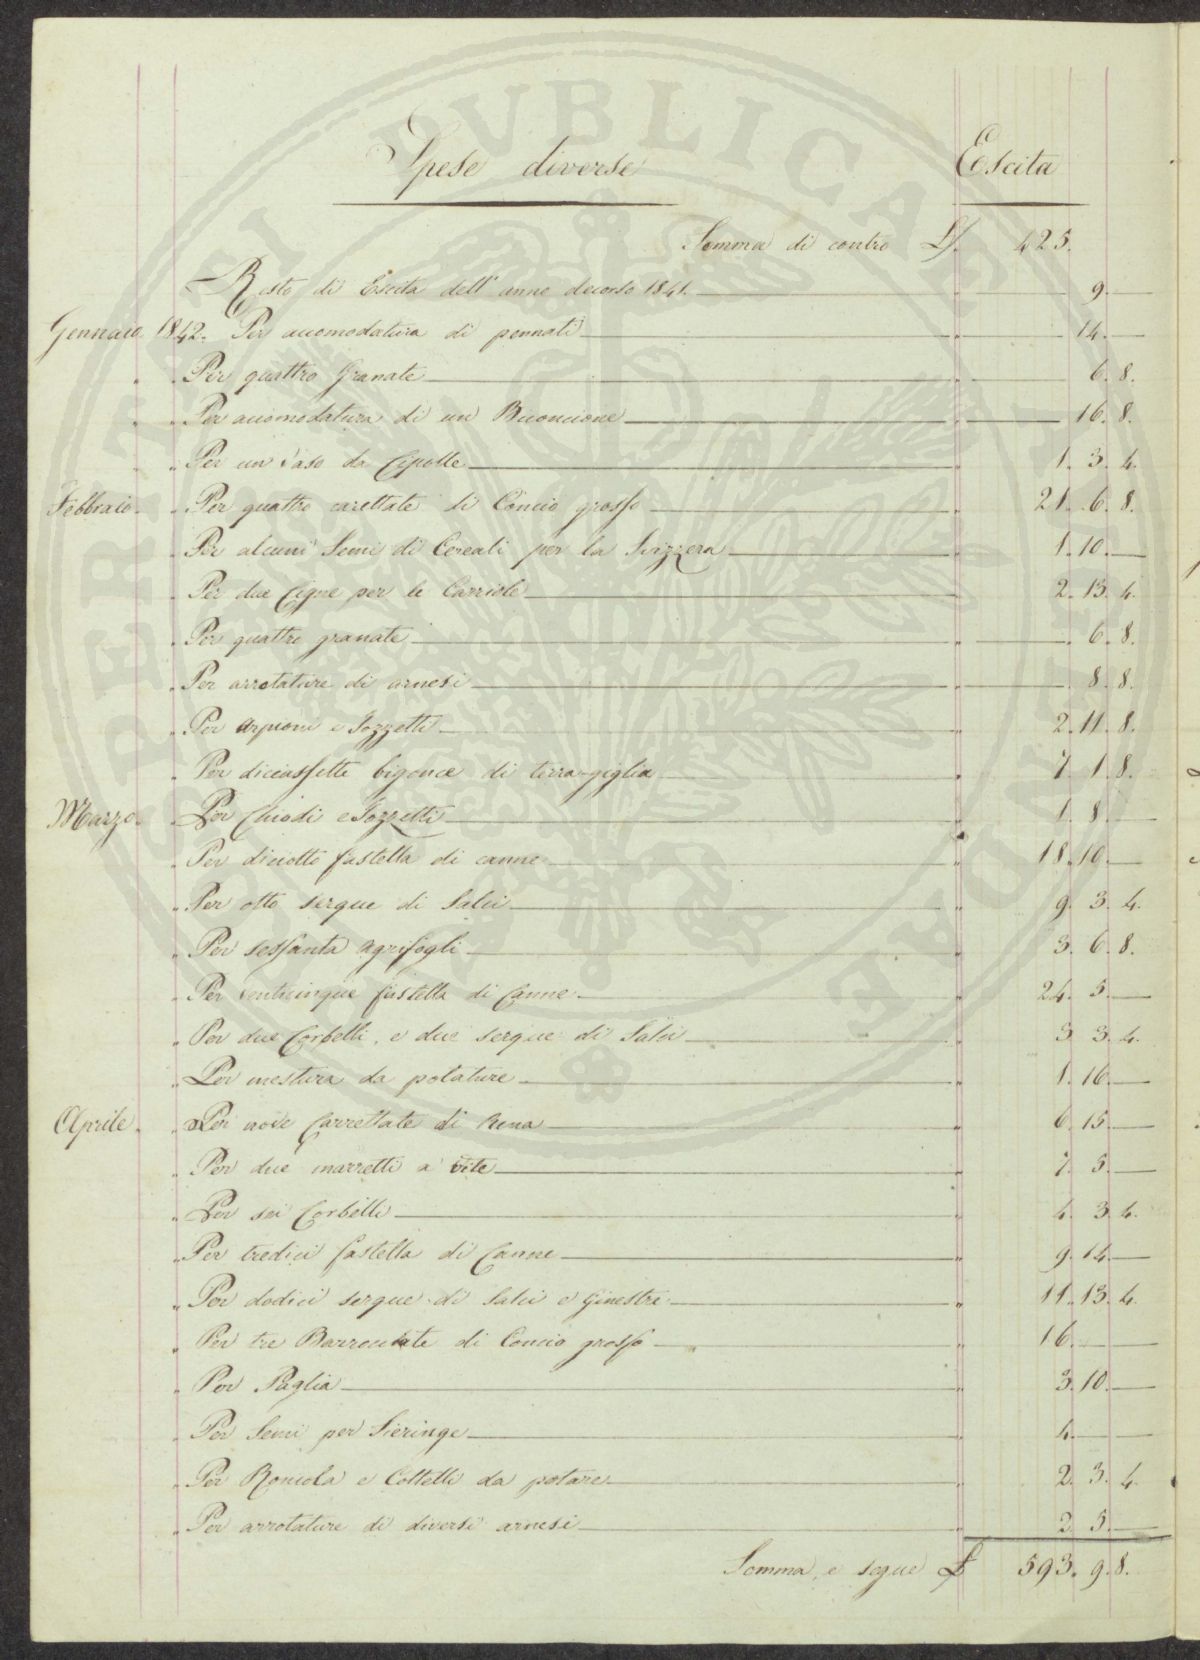 Spese diverse Escita
Somma di contro L. 425.
Resto di Escita dell' anno decorso 1841. 9.
Gennaio 1842. Per accomodatura di pennati 14.
" " Per quattro Granate " 6. 8.
" " Per accomodatura di un Buoncione " 16. 8.
" " Per un Vaso da Cipolle " 1. 3. 4.
Febbraio. " Per quattro carettate di Concio grosso " 21. 6. 8.
" Per alcuni Semi di Cereali per la Svizzera " 1. 10.
" Per due Cigne per le Carriole 2. 13. 4.
" Per quattro granate " 6. 8.
" Per arrotature di arnesi " 8. 8.
" Per arpioni e Pozzetti " 2. 11. 8.
" Per diciassette bigonce di terra-giglia " 7. 1. 8.
Marzo. Per Chiodi e Pozzetti " 1. 8.
" Per diciotto fastella di canne " 18. 10.
" Per otto serque di Salci " 9. 3. 4.
" Per sessanta agrifogli " 3. 6. 8.
" Per venticinque fastella di Canne " 24. 5.
" Per due Corbelli, e due serque di Salci " 3. 3. 4.
" Per mestura da potature " 1. 16.
Aprile. " Per nove Carrettate di Rena " 6. 15.
" Per due marretti a vite " 7. 5.
" Per sei Corbelli " 4. 3. 4.
" Per tredici fastella di Canne " 9. 14.
" Per dodici serque di Salci e Ginestre " 11. 13. 4.
" Per tre Barrocciate di Concio grosso " 16.
" Per Paglia " 3. 10.
" Per Semi per Sieringe " 4.
" Per Roncola e Coltelli da potare " 2. 3. 4.
" Per arrotature di diversi arnesi " 2. 5.
Somma, e segue L. 593. 9. 8.
PROSPERITATI PVBLICAE AVGENDAE